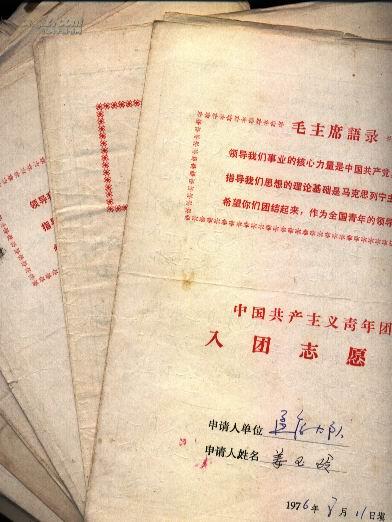 毛主席語录
领导我们事业的核心力量是中国共产党
指导我们思想的理论基础是马克思列宁主
希望你们团结起来，作为全国青年的领导
中国共产主义青年团
入团志愿
申请人单位 大队
申请人姓名 姜玉
1976年 月11日填
领导我
指导